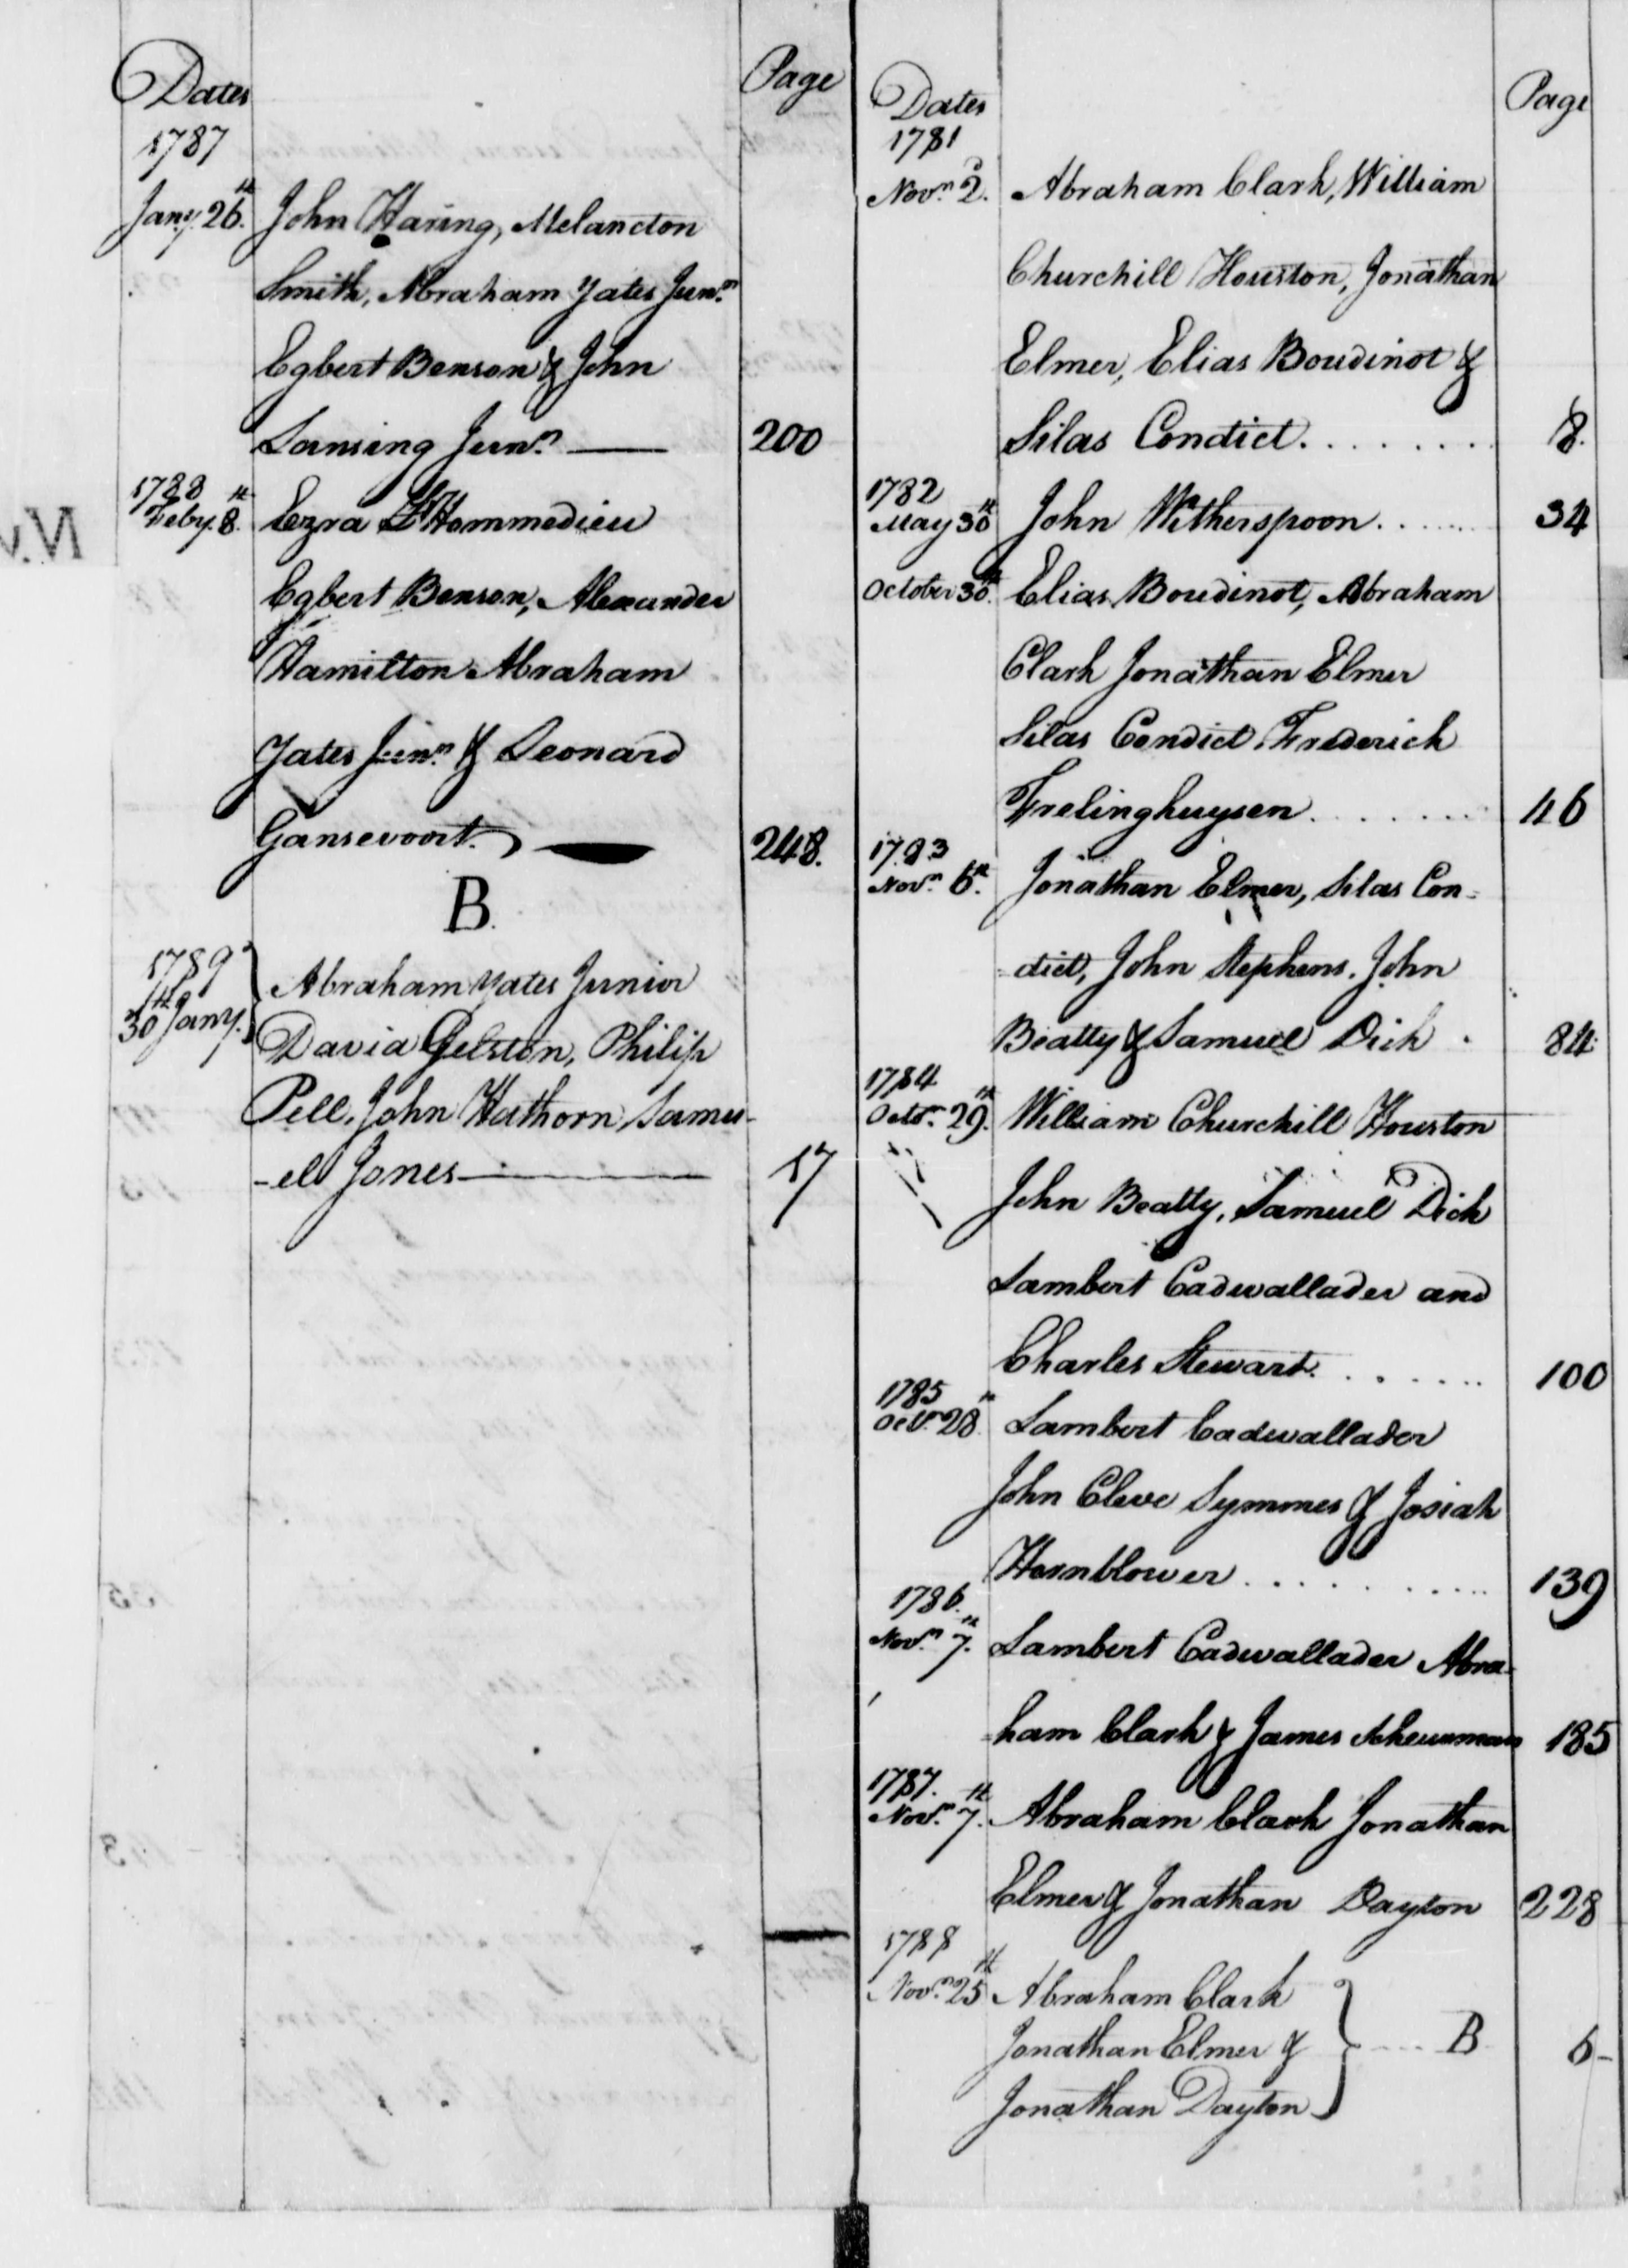 Dates
Page
1787
Jany. 26th John Haring, Melancton
Smith, Abraham Yates Junr.
Egbert Benson & John
Lansing Junr. 200
1788
Feby. 8th Ezra L'Hommedieu
Egbert Benson, Alexander
Hamilton Abraham
Yates Junr. & Leonard
Gansevoort. 248.
B.
1789
30th Jany. } Abraham Yates Junior
David Gelston, Philip
Pell, John Hathorn, Samu-
-el Jones 17
Dates
Page
1781
Novr. 2d. Abraham Clark, William
Churchill Houston, Jonathan
Elmer, Elias Boudinot &
Silas Condict........ 8.
1782
May 30th John Witherspoon........ 34
October 30th. Elias Boudinot, Abraham
Clark Jonathan Elmer
Silas Condict, Frederick
Frelinghuysen........ 46
1783
Novr. 6th. Jonathan Elmer, Silas Con-
-dict, John Stephens, John
Beatty & Samuel Dick . 84
1784
Octor. 29th. William Churchill Houston
John Beatty, Samuel Dick
Lambert Cadwallader and
Charles Stewart....... 100
1785
Octr. 28th Lambert Cadwallader
John Cleve Symmes & Josiah
Hornblower.......... 139
1786.
Novr. 7th. Lambert Cadwallader Abra-
-ham Clark & James Scheurman 185
1787.
Novr. 7th. Abraham Clark Jonathan
Elmer & Jonathan Dayton 228
1788
Novr. 25th Abraham Clark
Jonathan Elmer & } .... B 6-
Jonathan Dayton